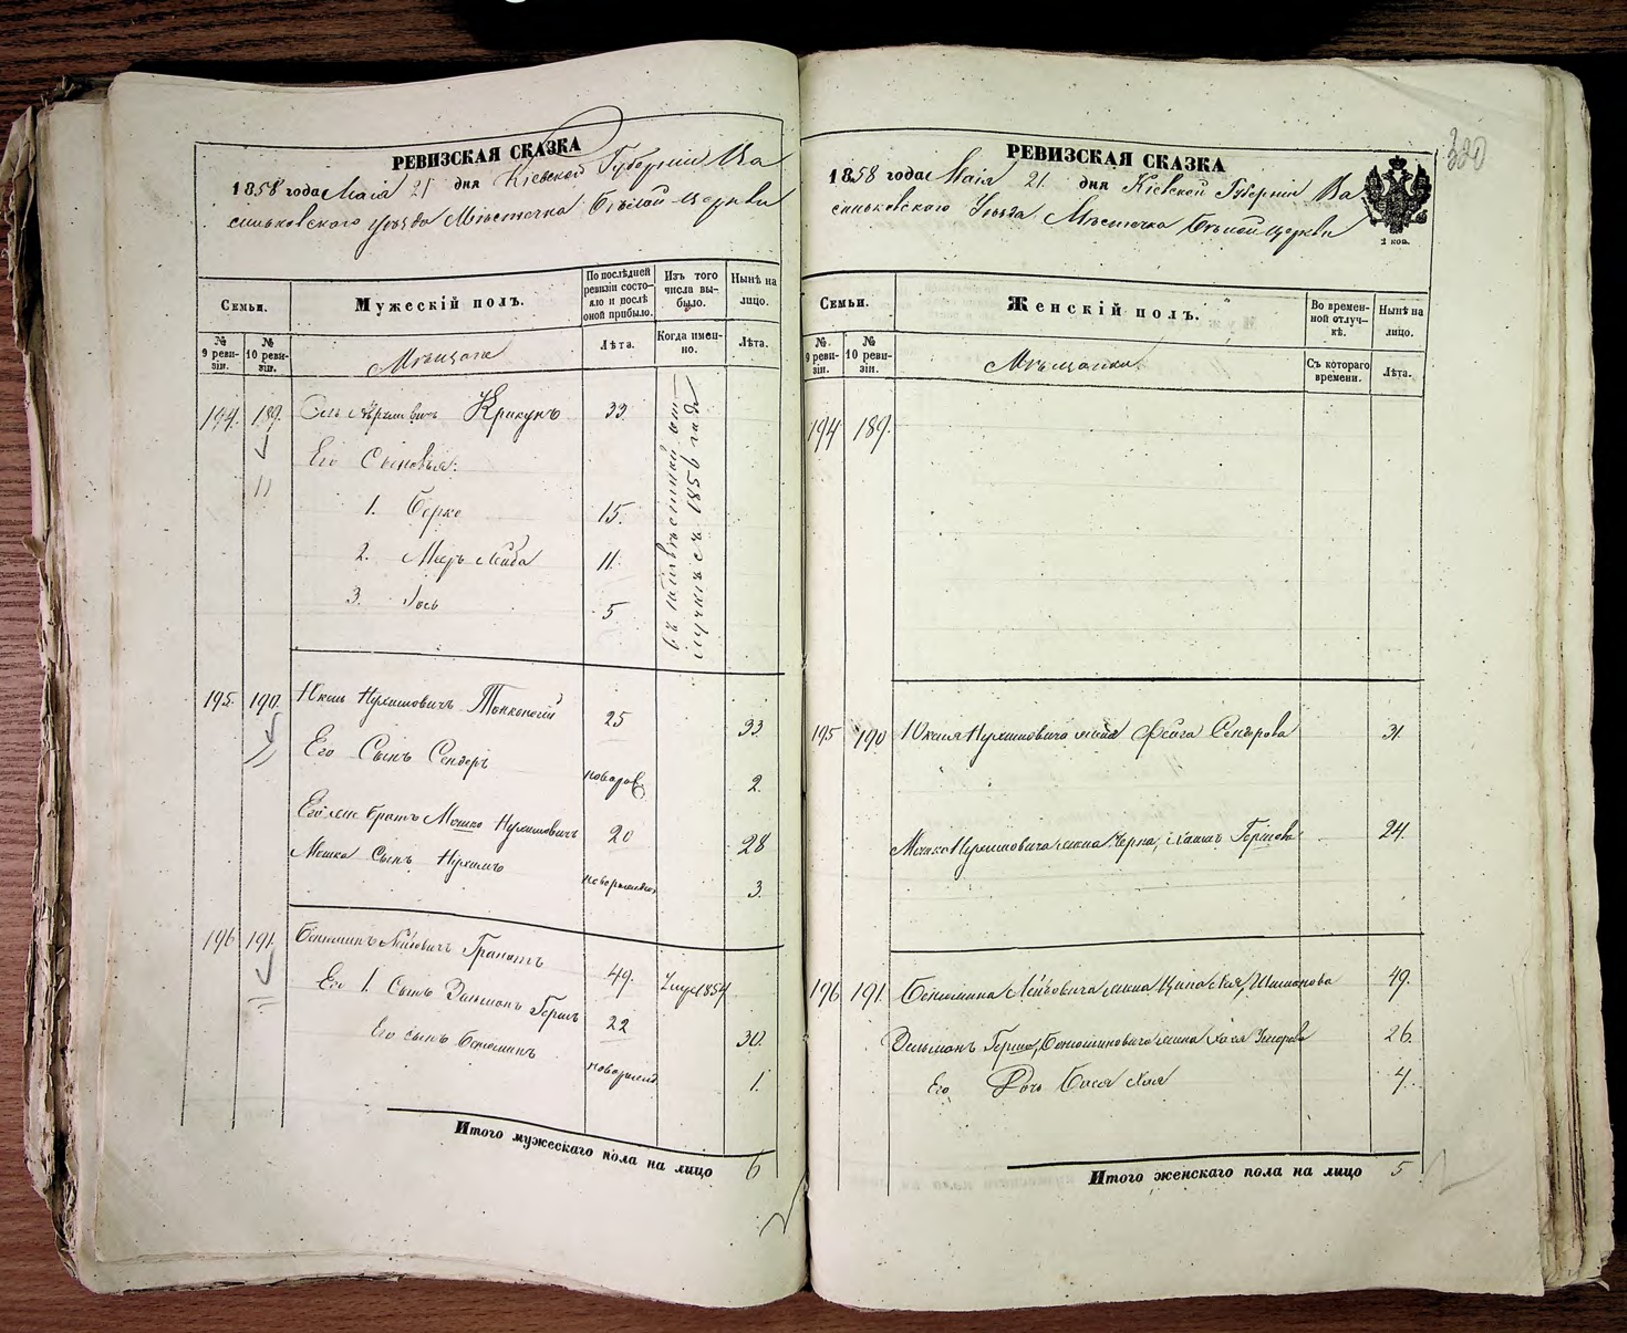 РЕВИЗСКАЯ СКАЗКА
1858 года Маія 21 дня Кіевской Губерніи Ва
сильковского уѣзда Мѣстечка Бѣлой Церкви
Семьи.
Мужескій полъ.
По послѣдней ревизіи состояло и послѣ оной прибыло.
Изъ того числа выбыло.
Нынѣ на лицо.
№ 9 ревизіи.
№ 10 ревизіи.
Мѣщане
Лѣта.
Когда именно.
Лѣта.
194. 189. Крикунъ 33
Его Сыновья:
1. Берко 15.
2. Меръ Лейба 11.
3. Іось 5
въ неизвѣстной от
лучкѣ съ 1856 года
195. 190. Юкель Нухимовичъ Тонконогій 25 33
Его Сынъ Сендеръ новорож 2.
Его же братъ Мошко Нухимовичъ 20 28
Мошка Сынъ Нухимъ новорожден 3.
196 191. Бенюминъ Лейбовичъ Гранатъ 49. Умеръ 1854
Его 1. Сынъ Зельманъ Гершъ 22 30.
Его сынъ Бенюминъ новорожд 1.
Итого мужескаго пола на лицо 6
РЕВИЗСКАЯ СКАЗКА
330
1858 года Маія 21. дня Кіевской Губерніи Ва
сильковского Уѣзда Мѣстечка Бѣлой Церкви
2 коп.
Семьи.
Женскій полъ.
Во временной отлучкѣ.
Нынѣ на лицо.
№ 9 ревизіи.
№ 10 ревизіи.
Мѣщанки
Съ котораго времени.
Лѣта.
194 189.
195 190 Юкеля Нухимовича жена Фейга Сендерова 31
Мошка Нухимовича жена Черна, Гершова 24
196 191. Бенюмина Лейбовича жена Ципа Хая, Шимонова 49.
Зельмана Герша, Бенюминовича жена Хая 26.
Его Дочь Бася Хая 4.
Итого женскаго пола на лицо 5